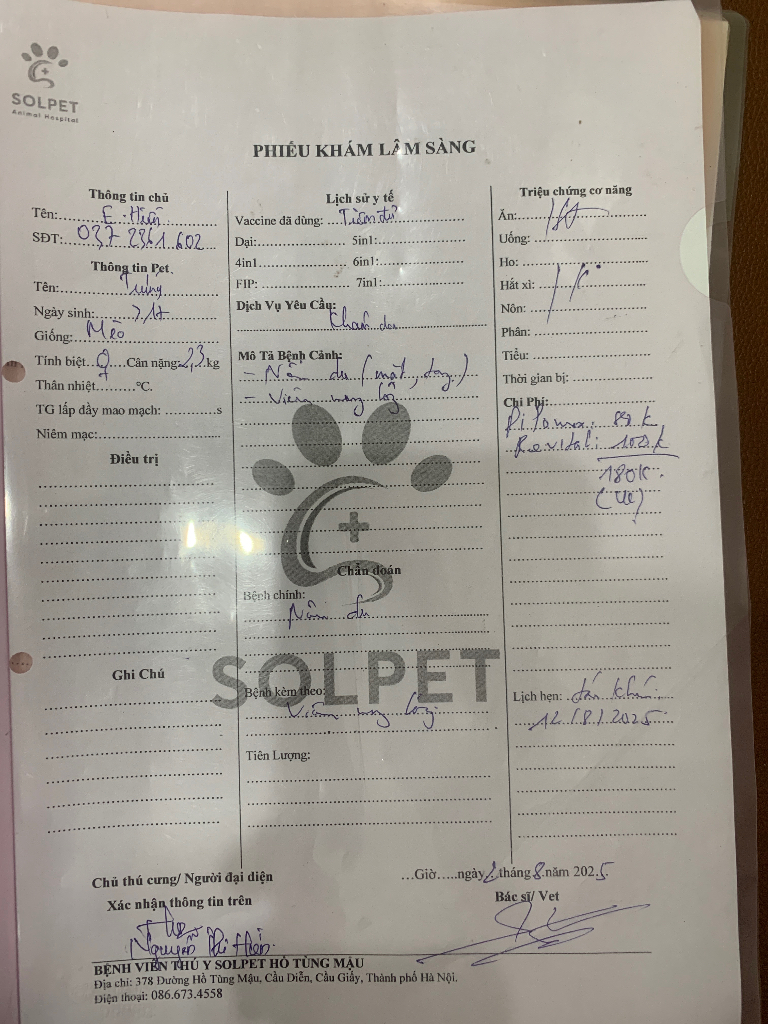 SOLPET
Animal Hospital
PHIẾU KHÁM LÂM SÀNG
Thông tin chủ
Tên: E. Hiền
SĐT: 037 2361 602
Thông tin Pet
Tên:
Ngày sinh: 7th
Giống: Mèo
Tính biệt ♀ Cân nặng: 2,3 kg
Thân nhiệt.........°C.
TG lấp đầy mao mạch: ............s
Niêm mạc:
Điều trị
Ghi Chú
Lịch sử y tế
Vaccine đã dùng:
Dại: 5in1:
4in1 6in1:
FIP: 7in1:
Dịch Vụ Yêu Cầu:
Khám da
Mô Tả Bệnh Cảnh:
- Nấm da (mặt, )
- Viêm nang lông
Chẩn đoán
Bệnh chính:
Nấm da
Bệnh kèm theo:
Viêm nang lông
Tiên Lượng:
SOLPET
Triệu chứng cơ năng
Ăn:
Uống:
Ho:
Hắt xì:
Nôn:
Phân:
Tiểu:
Thời gian bị:
Chi Phí:
80 k
100k
180k
(ck)
Lịch hẹn: tái khám
12/8/2025
...Giờ.....ngày 2 tháng 8 năm 2025.
Chủ thú cưng/ Người đại diện
Xác nhận thông tin trên
Bác sĩ/ Vet
Nguyễn Thị Hiền
BỆNH VIỆN THÚ Y SOLPET HỒ TÙNG MẬU
Địa chỉ: 378 Đường Hồ Tùng Mậu, Cầu Diễn, Cầu Giấy, Thành phố Hà Nội.
Điện thoại: 086.673.4558